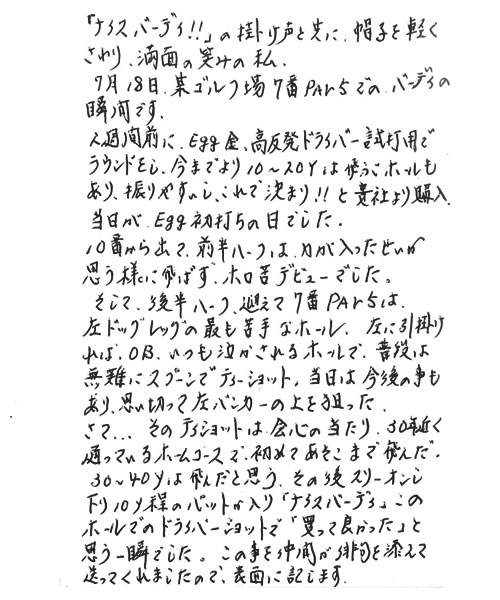 「ナイスバーディ!!」の掛け声と共に、帽子を軽く
さわり、満面の笑みの私。
7月18日、某ゴルフ場7番PAr5での、バーディの
瞬間です。
2週間前に、Egg金、高反発ドライバー試打用で
ラウンドをし、今までより10〜20Yは飛ぶホールも
あり、振りやすいし、これで決まり!!と貴社より購入、
当日が、Egg初打ちの日でした。
10番から出て、前半ハーフは、力が入ったせいか
思う様に飛ばず、ホロ苦デビューでした。
そして、後半ハーフ、迎えて7番PAr5は、
左ドッグレッグの最も苦手なホール、左に引掛け
れば、OB、いつも泣かされるホールで、普段は
無難にスプーンでティーショット。当日は今後の事も
あり、思い切って左バンカーの上を狙った。
さて... そのティショットは会心の当たり、30年近く
通っているホームコースで、初めてあそこまで飛んだ。
30〜40Yは飛んだと思う、その後スリーオンし
下り10Y程のパットが入り「ナイスバーディ」この
ホールでのドライバーショットで「買って良かった」と
思う一瞬でした。この事を仲間が俳句を添えて
送ってくれましたので、表面に記します。